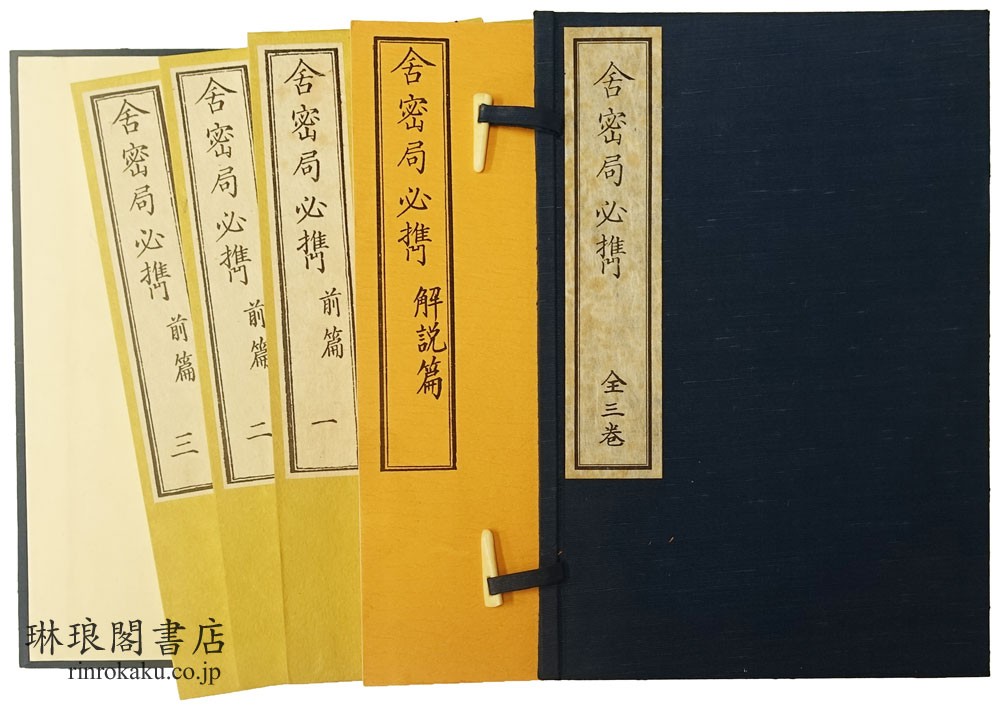 舎密局必携
全三巻
舎密局必携
解説篇
舎密局必携
前篇
一
舎密局必携
前篇
二
舎密局必携
前篇
三
琳琅閣書店
rinrokaku.co.jp